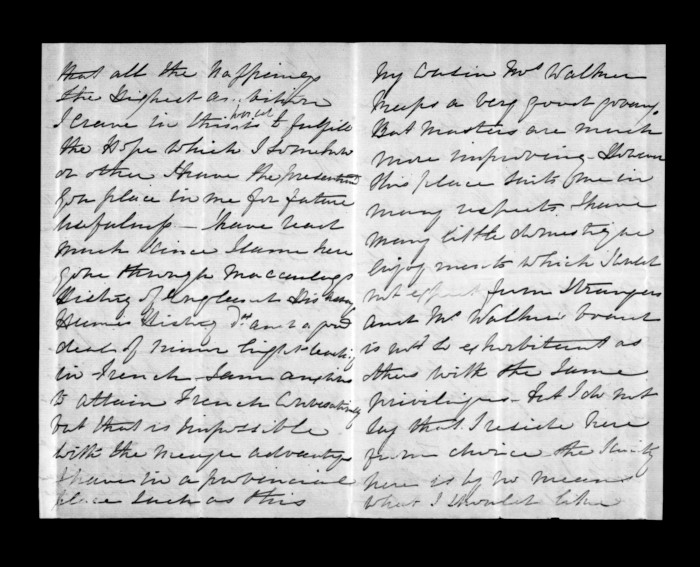 that all the happiness
the highest as
I crave in this world is to fulfill
the Hope which I somehow
or other I have the
you place in me for future
usefulness – I have read
much since I came here
gone through Maccaulays
History of England
Humes History Do and a good
deal of minor light reading
in French. I am anxious
to attain French Conversation
but that is impossible
with the meagre advantages
I have in a provincial
place such as this
My Cousin Mrs Walker
keeps a very good govern.
But Masters are much
more improving –
this place suits me in
many respects. I have
many little domestique
enjoyments which I could
not expect from Strangers
and Mrs Walkers board
is not so exhorbitant as
others with the same
priviliges – but I do not
say that I reside here
from choice the Society
here is by no means
what I should like